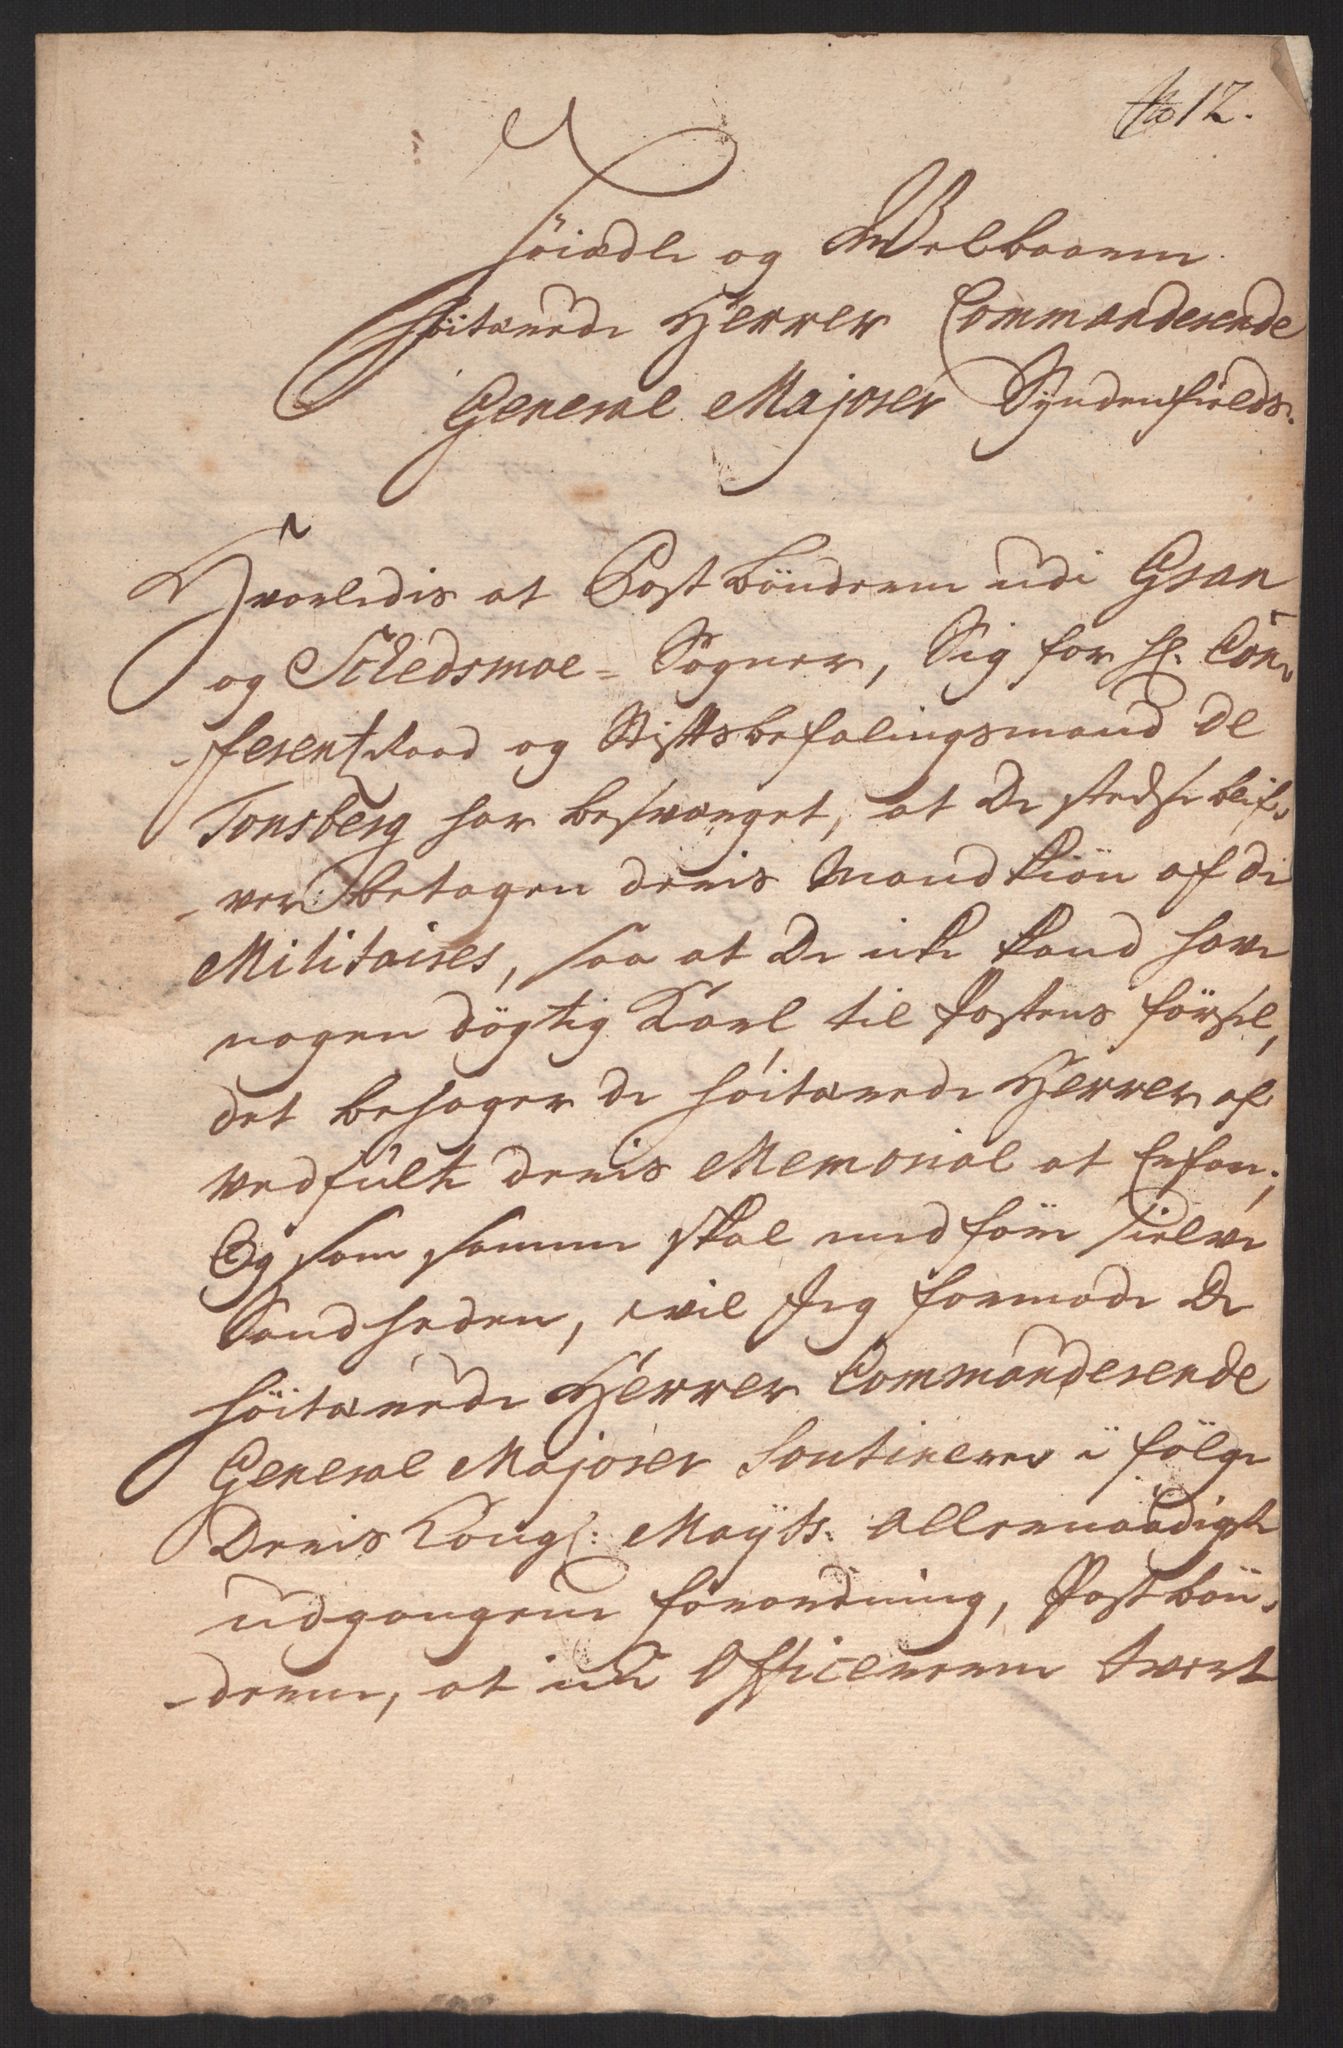 No 12.
Höiædle og Welbaarne
Höitærede Herrer Commanderende
General Majorer Syndenfields.
Hvorledis at Postbönderne udi Gran
og Schedsmoe= Sogner, Sig for H. Con¬
-ferentz Raad og Stiftsbefalingsmand de
Tonsberg har besværget, at De stedse blif¬
-ver betagen deris Mandkiön af de
Militaires, saa at De icke kand have
nogen dögtig Karl til Postens försel,
det behager de höitærede Herrer af
vedfülte deris Memorial at Erfare;
Og som samme skal medföre sielve
Sandheden, vil Jeg formode De
höitærede Herrer Commanderende
General Majorer Soutinerer i fölge
Deris Kongl: Mayts. allernaadigste
udgangene forordning, Postbön¬
-derne, at ei Officererne tvert